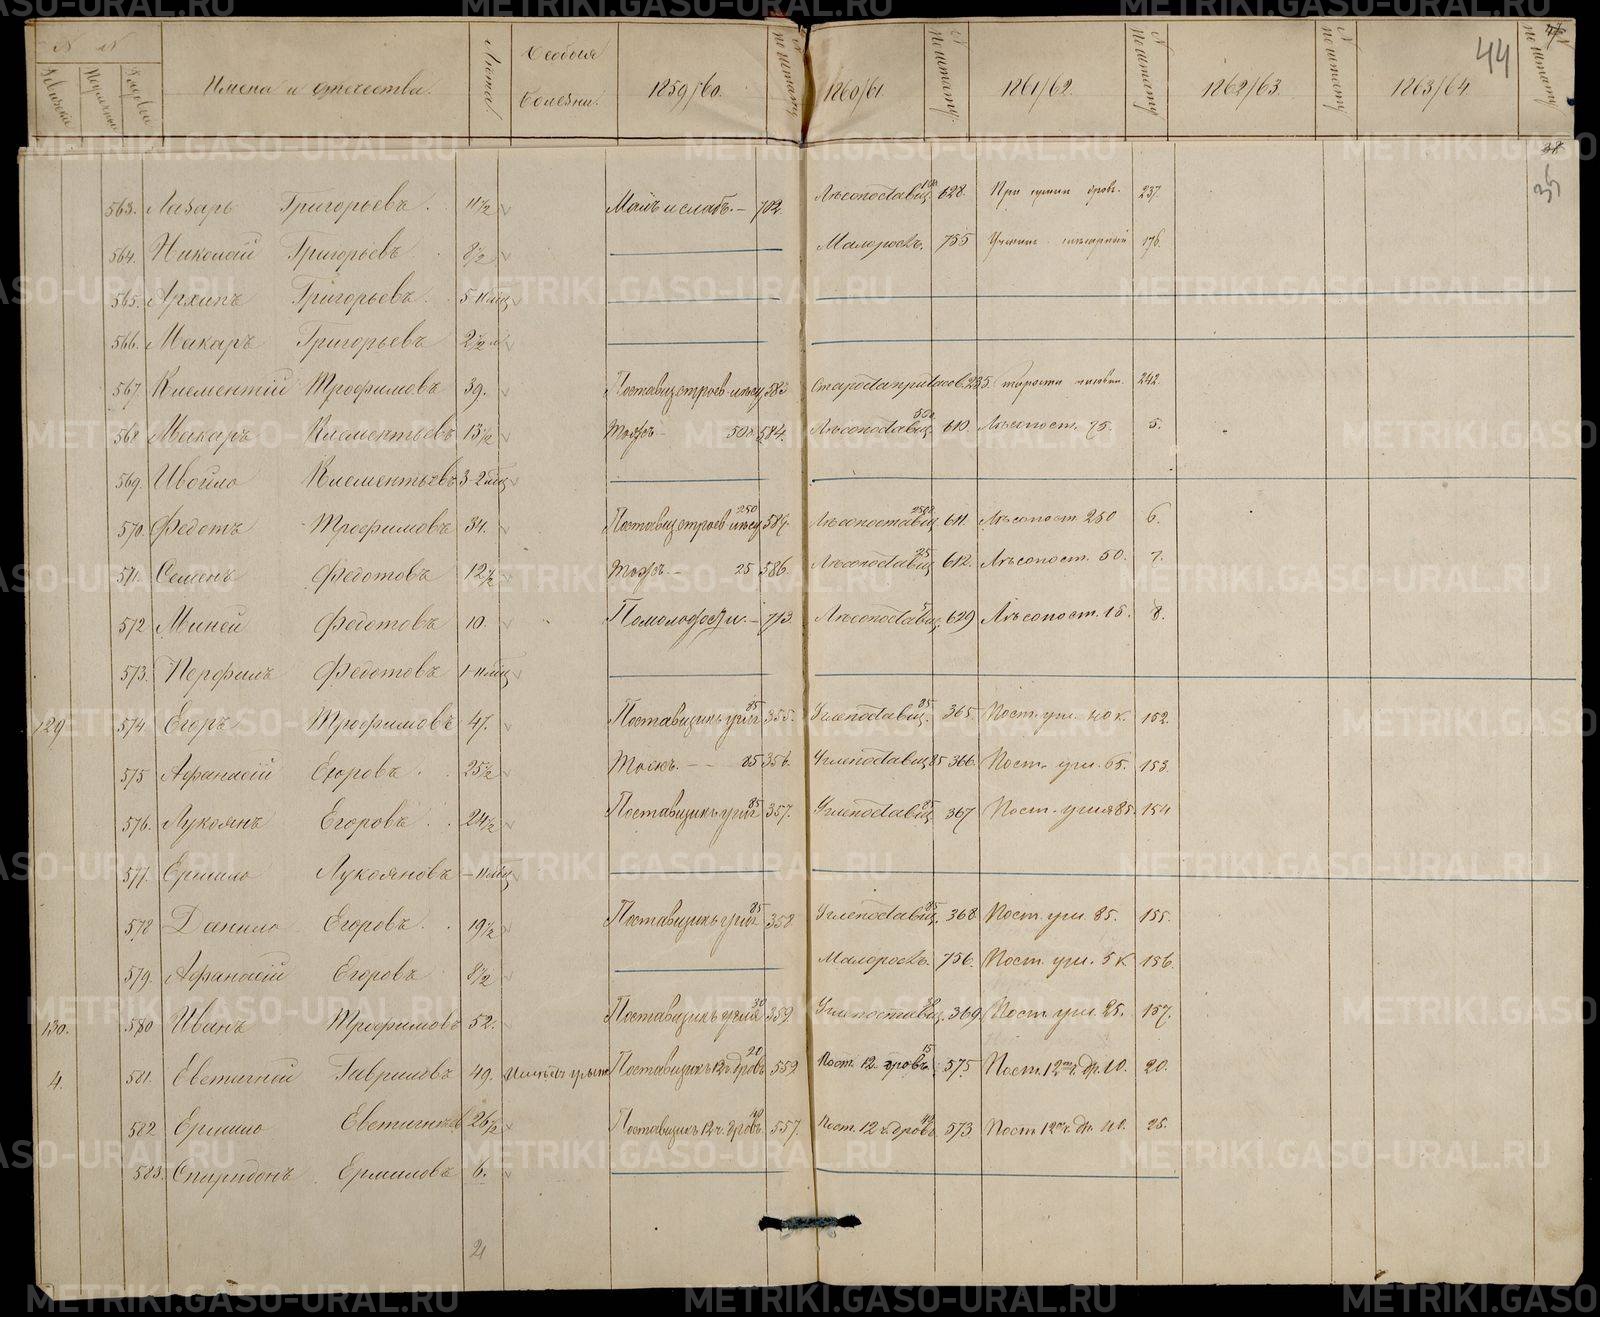 44
N N
Имена и отечества.
Лѣта.
Особыя болѣзни.
1859/60.
N по штату
1860/61.
N по штату.
1861/62.
N по штату
1862/63.
N по штату
1863/64.
N по штату
38
35
563. Лазарь Григорьевъ. 11 1/2 702. Лѣсопоставщ. 628. При сушки дровъ. 237.
564. Николай Григорьевъ. 8 1/2 Малоросл. 755 176.
565. Архипъ Григорьевъ. 5-11 мѣц
566. Макаръ Григорьевъ 2 1/2
567. Клементий Трофимовъ 39. Поставщ. строев. лѣсу 583 235. 242.
568. Макаръ Клементьевъ 13 1/2 Тожъ - 50 584. Лѣсопоставщ. 50 610. Лѣсопост. 75. 5.
569. Ивойло Клементьевъ 3-2 мѣц
570. Федотъ Трофимовъ 34. Поставщ. строев лѣсу 250 Лѣсопоставщ 250 611. Лѣсопост. 250 6.
571. Семенъ Федотовъ 12 1/2 Тожъ. - 25 586. Лѣсопоставщ 25 612. Лѣсопост. 50. 7.
572 Миней Федотовъ 10. По молодости. - 713. Лѣсопоставщ. 629 Лѣсопост. 15. 8.
573. Перфилъ Федотовъ 1-11 мѣц
129 574 Егоръ Трофимовъ 47. Поставщикъ угля 85 355. Углепоставщ. 85 365. Пост. угл. 110 к. 152.
575 Афанасій Егоровъ. 25 1/2 Тожъ. - - 85 356. Углепоставщ 85 366. Пост. угл. 65. 153.
576. Лукоянъ Егоровъ. 24 1/2 Поставщикъ угля 85 357. Углепоставщ. 85 367 Пост. угля 85. 154
577. Ермило Лукояновъ - 11 мѣц
578 Данило Егоровъ. 19 1/2 Поставщикъ угля 85 358 Углепоставщ. 85 368 Пост. угл. 85. 155.
579. Афанасій Егоровъ 8 1/2 Малоросл. 756. Пост. угл. 5 к 156.
130. 580 Иванъ Трофимовъ 52. Поставщикъ угля 30 359. Углепоставщ. 369 Пост. угл. 25. 157.
4. 581. Евстигней Гавриловъ 49. Поставщикъ 12 ч. дровъ 20 559 Пост. 12. дровъ. 15 575 Пост. 12 ч. др. 10. 20.
582 Ермило Евстигнѣевъ 26 1/2 Поставщикъ 12 ч. дровъ. 557. Пост. 12 ч. дровъ 573 Пост. 12 ч. др. 25.
583. Спиридонъ Ермиловъ 6.
21
METRIKI.GASO-URAL.RU